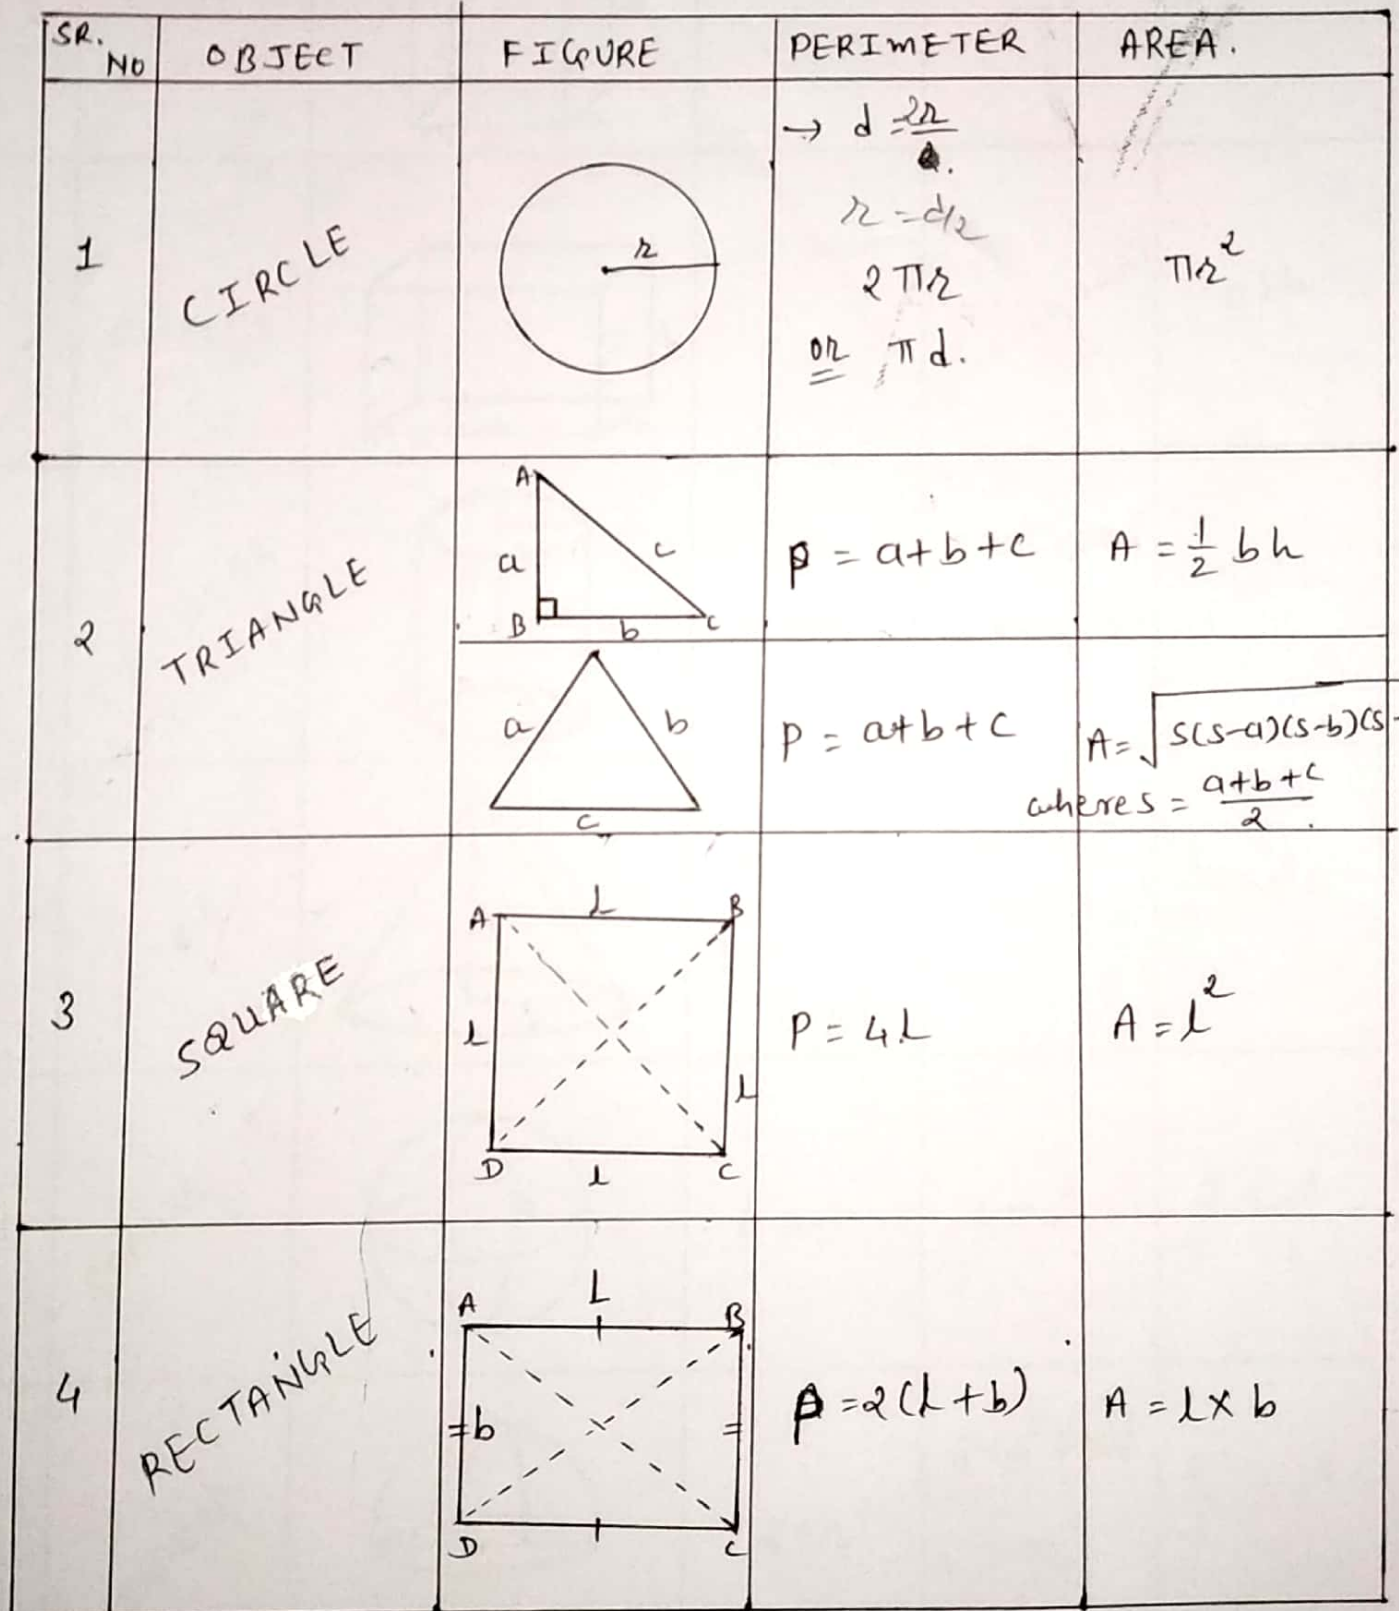 SR. NO OBJECT FIGURE PERIMETER AREA.
1 CIRCLE
r
→ d = 2r
r = d/2
2πr
or πd.
πr²
2 TRIANGLE
A
a c
B b C
P = a+b+c
A = 1/2 bh
a b
c
P = a+b+c
A = √s(s-a)(s-b)(s-
where s = a+b+c/2.
3 SQUARE
A L B
l l
D l C
P = 4L
A = l²
4 RECTANGLE
L
A B
b
D C
P = 2(l+b)
A = l × b